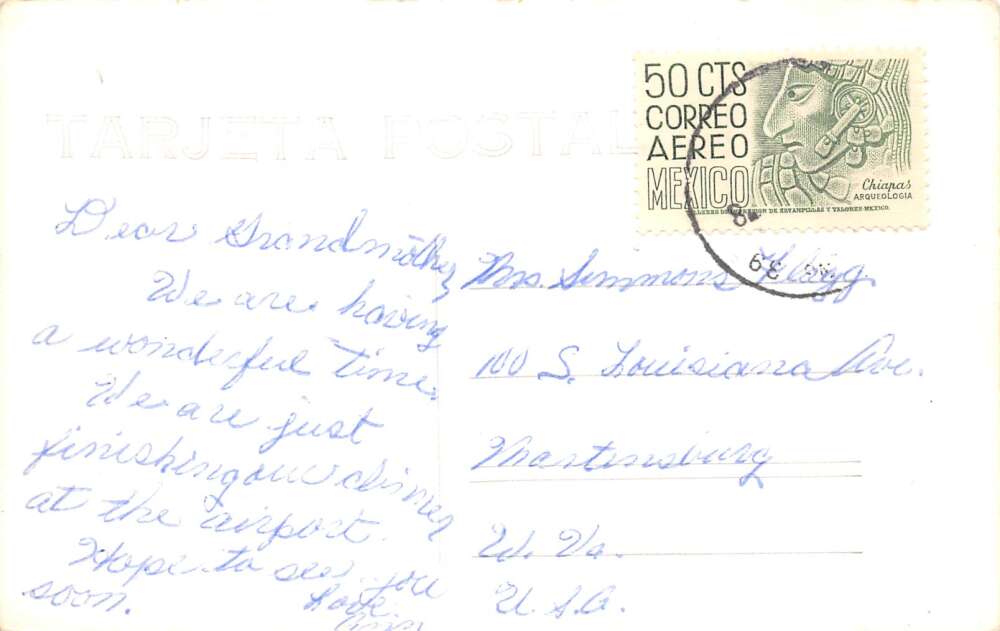 TARJETA POSTAL
50 CTS
CORREO
AEREO
MEXICO
Chiapas
ARQUEOLOGIA
DE ESTAMPILLAS Y VALORES-MEXICO.
Dear Grandmother
We are having
a wonderful time.
We are just
finishing our dinner
at the airport.
Hope to see you
soon.
Love
Ann
Mrs. Simmons Flagg
100 S. Louisiana Ave.
Martinsburg
W. Va.
U.S.A.